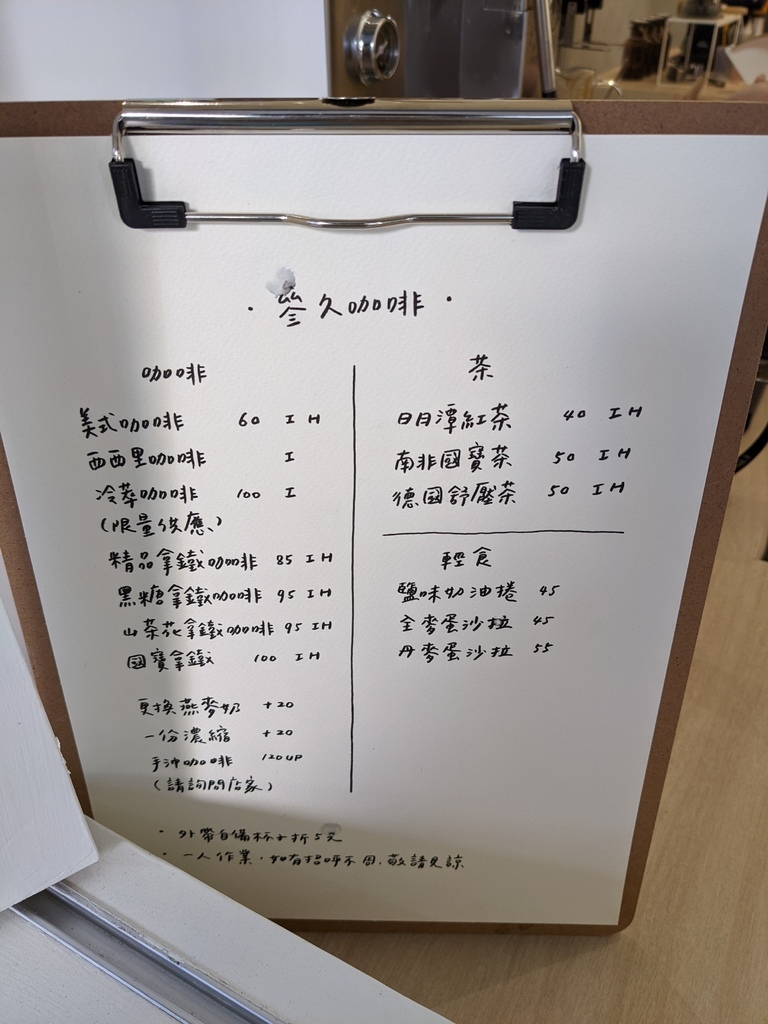 · 叄久咖啡 ·
咖啡
美式咖啡 60 I H
西西里咖啡 I
冷萃咖啡 100 I
(限量供應)
精品拿鐵咖啡 85 I H
黑糖拿鐵咖啡 95 I H
山茶花拿鐵咖啡 95 I H
國寶拿鐵 100 I H
更換燕麥奶 +20
一份濃縮 +20
手沖咖啡 120UP
(請詢問店家)
茶
日月潭紅茶 40 I H
南非國寶茶 50 I H
德國舒壓茶 50 I H
輕食
鹽味奶油捲 45
全麥蛋沙拉 45
丹麥蛋沙拉 55
· 外帶自備杯子折5元
· 一人作業,如有招呼不周,敬請見諒